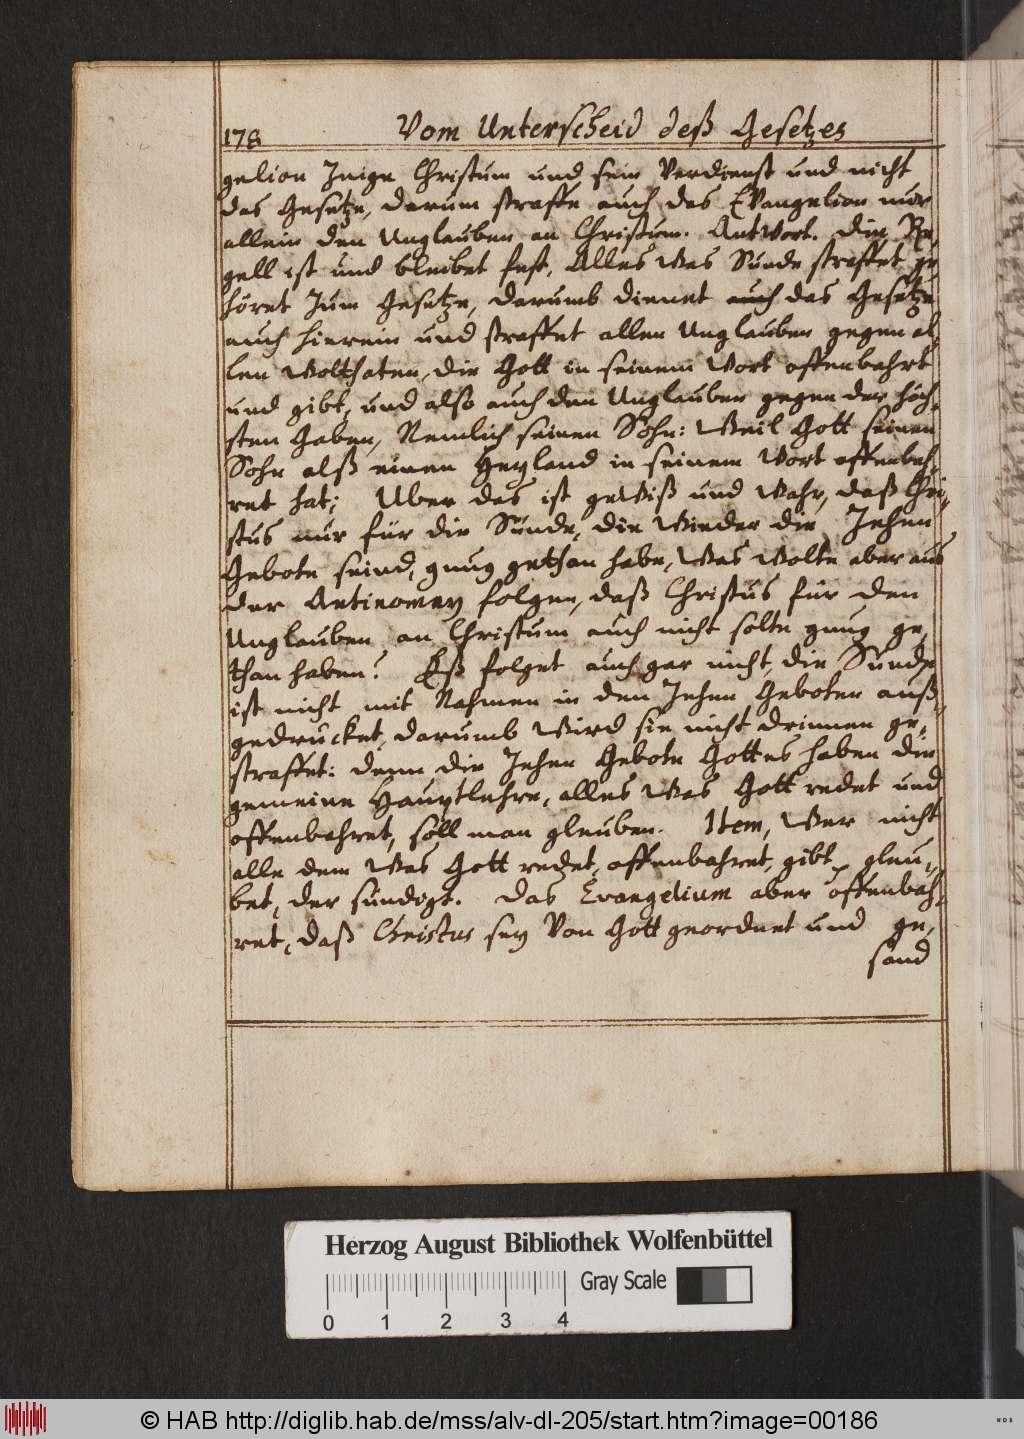 178 Vom Unterscheid deß Gesetzes
gelion Zeige Christum und sein Verdienst und nicht
das Gesetze, darum straffe auch das Evangelion nur
allein den Unglauben an Christum. Antwort. Die Re,
gell ist und bleibet fest, Alles was Sünde straffet ge
höret zum Gesetze, darumb dienet auch das Gesetze
auch hierein und straffet allen Unglauben gegen al,
len Wolthaten, die Gott in seinem Wort offenbahrt
und gibt, und also auch den Unglauben gegen der höch,
sten Gaben, Nemlich seinen Sohn: Weil Gott seinen
Sohn alß einen Heyland in seinem Wort offenbah,
ret hat; Uber das ist gewiß und wahr, daß Chri,
stus nur für die Sünde, die wieder die Zehen
Gebote seind, gnug gethan habe, Was wolte aber aus
der Antinomey folgen, daß Christus für den
Unglauben an Christum auch nicht solte gnug ge,
than haben? Eß folget auch gar nicht, die Sünde
ist nicht mit Nahmen in den Zehen Geboten auß,
gedrucket, darumb wird sie nicht drinnen ge,
straffet: denn die Zehen Gebote Gottes haben die
gemeine Hauptlehre, alles was Gott redet und
offenbahret, soll man gleuben. Item, Wer nicht
alle dem was Gott redet, offenbahret, gibt, gleu,
bet, der sündigt. Das Evangelium aber offenbah,
ret, daß Christus sey von Gott geordnet und ge,
sand
Herzog August Bibliothek Wolfenbüttel
Gray Scale
0 1 2 3 4
© HAB http://diglib.hab.de/mss/alv-dl-205/start.htm?image=00186